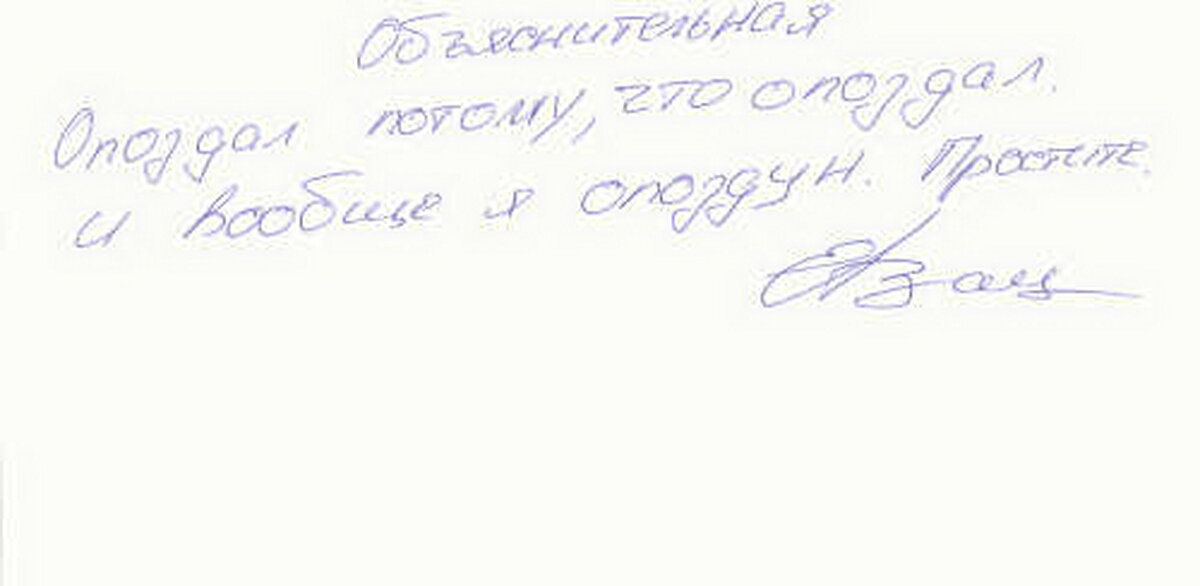 Объяснительная
Опоздал потому, что опоздал.
и вообще я опоздун. Простите.